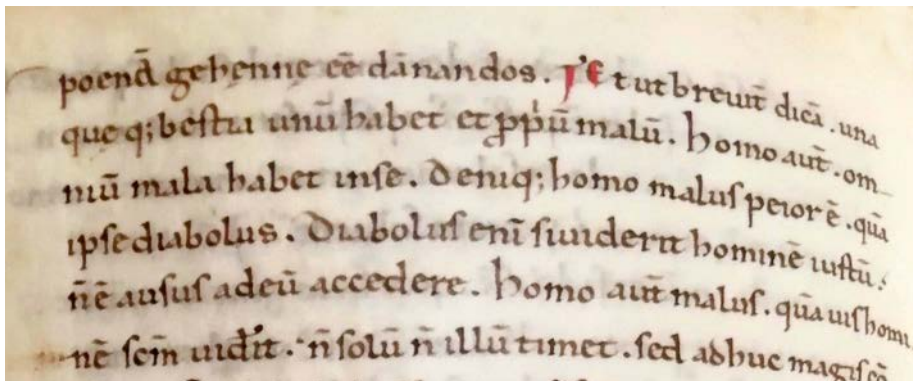 poenā gehennę eē dānandos. Et ut breuit̄ dicā. una
queq; bestia unū habet et ꝓpͥū malū. homo aut̄. om
niū mala habet inse. deniq; homo malus peior ē. quā
ipse diabolus. Diabolus enī si uiderit hominē iustū.
n̄ ē ausus ad eū accedere. homo aut̄ malus. quāuis homi
nē sc̄m uiderit. n̄ solū n̄ illū timet. sed adhuc magis